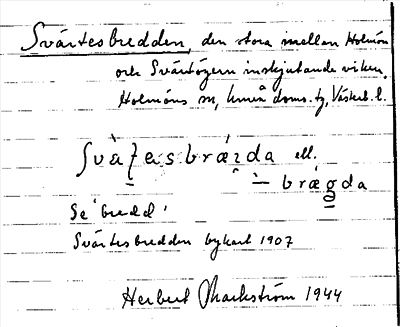 Svärtesbredden, den stora mellan Holmön
och Svärtögern inskjutande viken,
Holmöns sn, Umeå doms. tg, Västerb. l.
ell.
Se 'bredd'
Svärtesbredden bykart 1907
Herbert Markström 1944